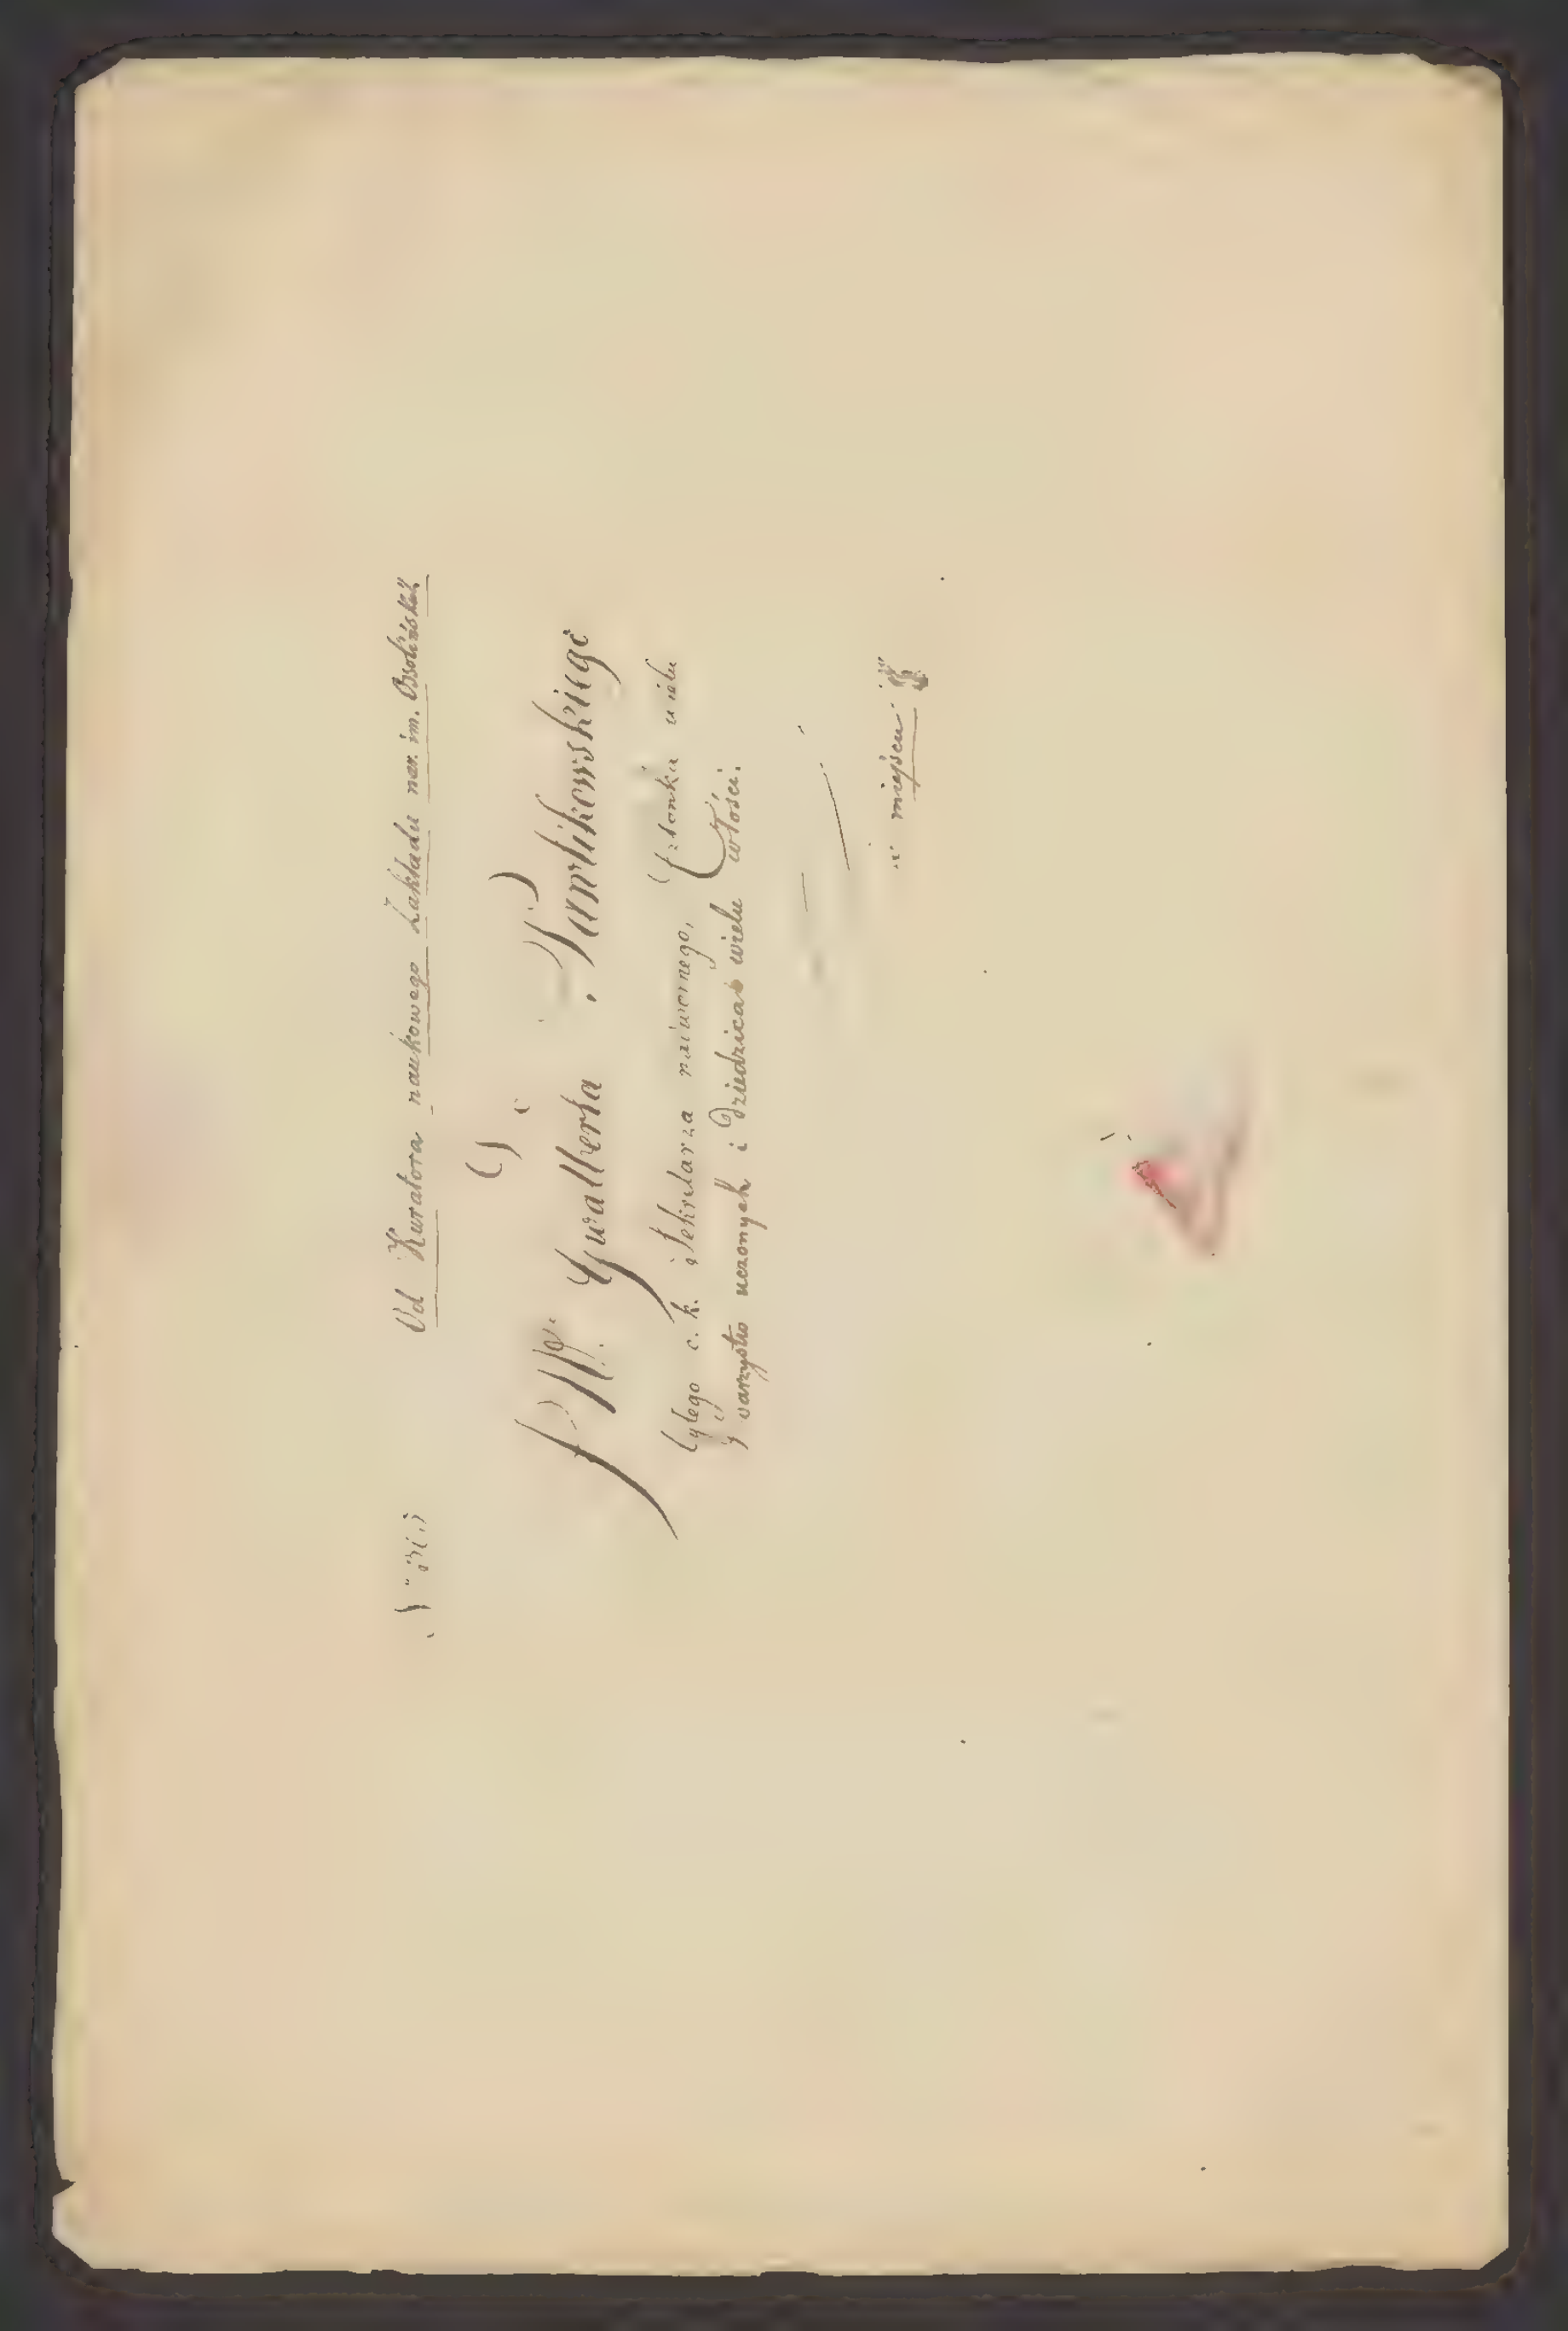 Od Kuratora naukowego Zakładu nar. im. Ossolińskich
Do
JW Gwalberta Pawlikowskiego
byłego c. k. Sekretarza nadwornego, Członka wielu
Towarzystw uczonych i Dziedzica wielu włości.
w miejscu